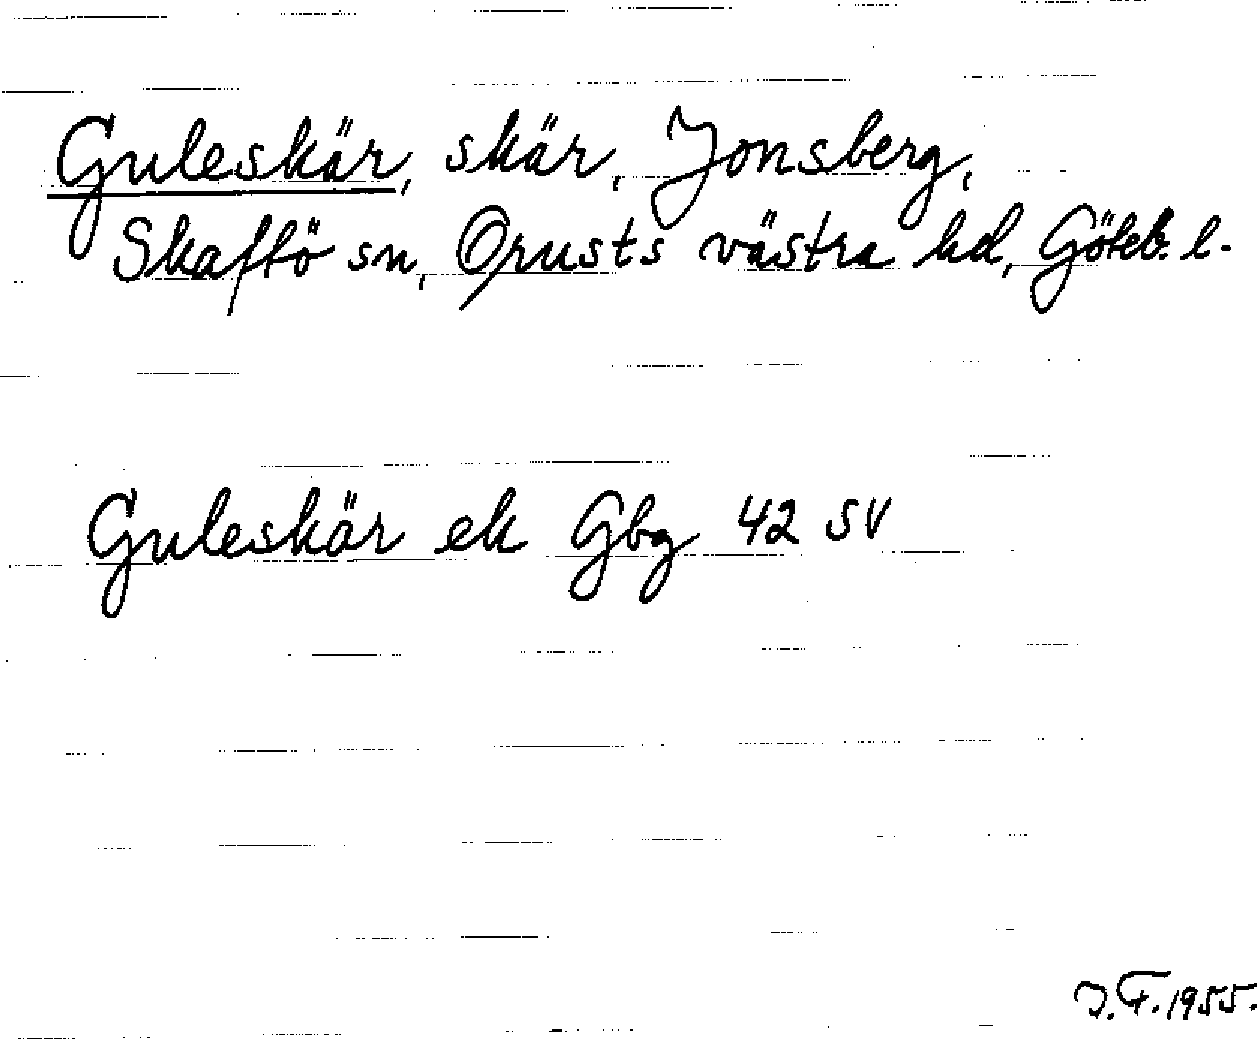 Guleskär, skär, Jonsberg,
Skaftö sn, Orusts västra hd, Göteb. l.
Guleskär ek Gbg 42 SV
J.F. 1955.